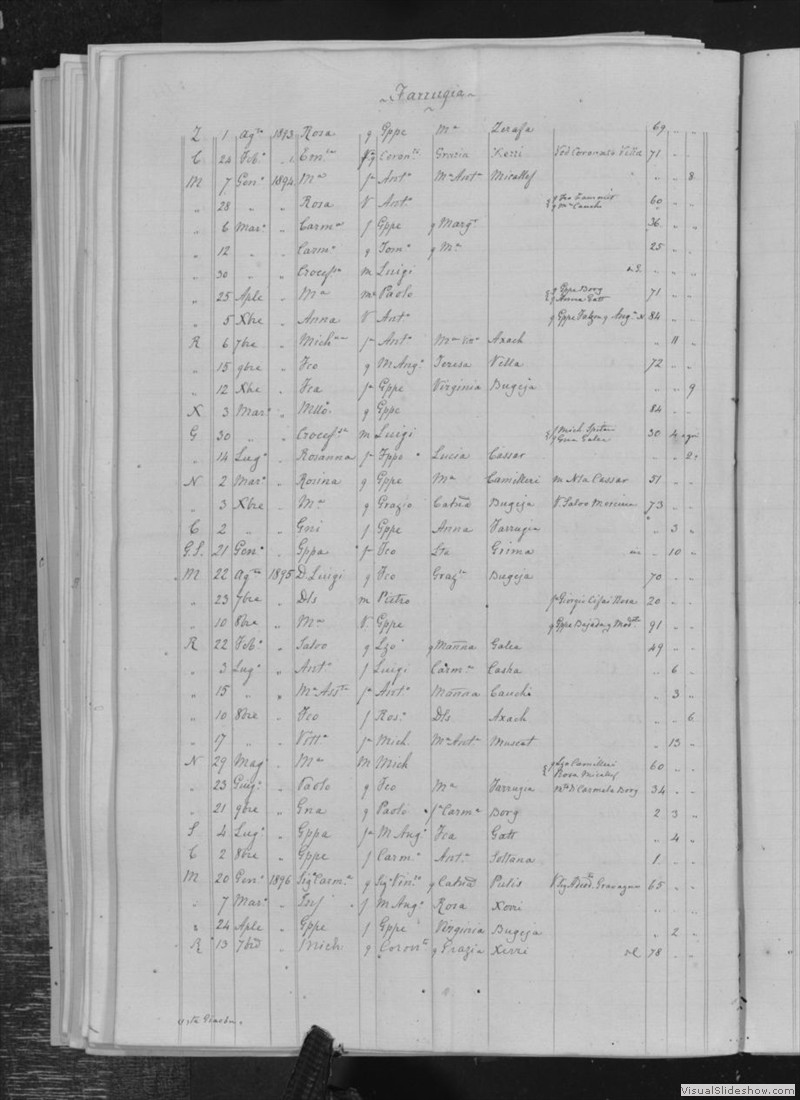 Farrugia
Z 1 Ag.to 1893 Rosa q Gppe Ma Zerafa 69 " "
C 24 Feb.o " Em.la q Coron.to Grazia Xerri Ved Coronato Vella 71 " "
M 7 Gen.o 1894 Ma f Ant.o Ma Ant.a Micallef " " 8
" 28 " " Rosa V Ant.o 60 " "
" 6 Mar.o " Carm.a f Gppe q Marg.a 36 " "
" 12 " " Carm.o q Tom.o q Ma 25 " "
" 30 " " Crocef.sa m Luigi " " "
" 25 Aple " Ma m Paolo q Gppe Borg q Anna Gatt 71 " "
" 5 Xbre " Anna V Ant.o q Gppe Falzon q Ang.a 84 " "
R 6 7bre " Mich. f Ant.o Ma Vin.a Axach " 11 "
" 15 9bre " Fco q M Ang.o Teresa Vella 72 " "
" 12 Xbre " Fca f Gppe Virginia Bugeja " " 9
X 3 Mar.o " q Gppe 84 " "
G 30 " " Crocef.sa m Luigi f Mich. Spiteri q Galea 30 4
" 14 Lug.o " Rosanna f Gppe Lucia Cassar " " 2
N 2 Mar.o " Rosina q Gppe Ma Camilleri m Nla Cassar 51 " "
" 3 Xbre " Ma q Grazio Cat.na Bugeja V Salvo 73 " "
C 2 " " Gni f Gppe Anna Farrugia " 3 "
G.S. 21 Gen.o " Gppa f Fco Grima " 10 "
M 22 Ag.to 1895 D. Luigi q Fco Graz.a Bugeja 70 " "
" 23 7bre " Dls m Pietro f Giorgio 20 " "
" 10 8bre " Ma V. Gppe q Gppe Bajada q 91 " "
R 22 Feb.o " Salvo q Lzo q Marña Galea 49 " "
" 3 Lug.o " Ant.o f Luigi Carm.a Casha " 6 "
" 15 " " Ma Ass.ta f Ant.o Marña Cauchi " 3 "
" 10 8bre " Fco f Ros.o Dls Axach " " 6
" 17 " " Vitt.a f Mich. Ma Ant.a Muscat " 13 "
N 29 Mag.o " Ma M Mich q Lzo Camilleri Rosa Micallef 60 " "
" 23 Giug.o " Paolo q Fco Ma Farrugia Carmela Borg 34 " "
" 21 9bre " Gna q Paolo f Carm.a Borg 2 3 "
S 4 Lug.o " Gppa f M Ang.o Fca Gatt " 4 "
C 2 8bre " Gppe f Carm.o Ant.a Soltana 1 " "
M 20 Gen.o 1896 Sig.a Carm.a q Sig Vin.zo q Cat.na Pulis 65 " "
" 7 Mar.o " f M Ang.o Rosa Xerri " " "
" 24 Aple " Gppe f Gppe Virginia Bugeja " 2 "
R 13 7bre " Mich q Coron.to q Grazia Xerri 78 " "
VisualSlideshow.com